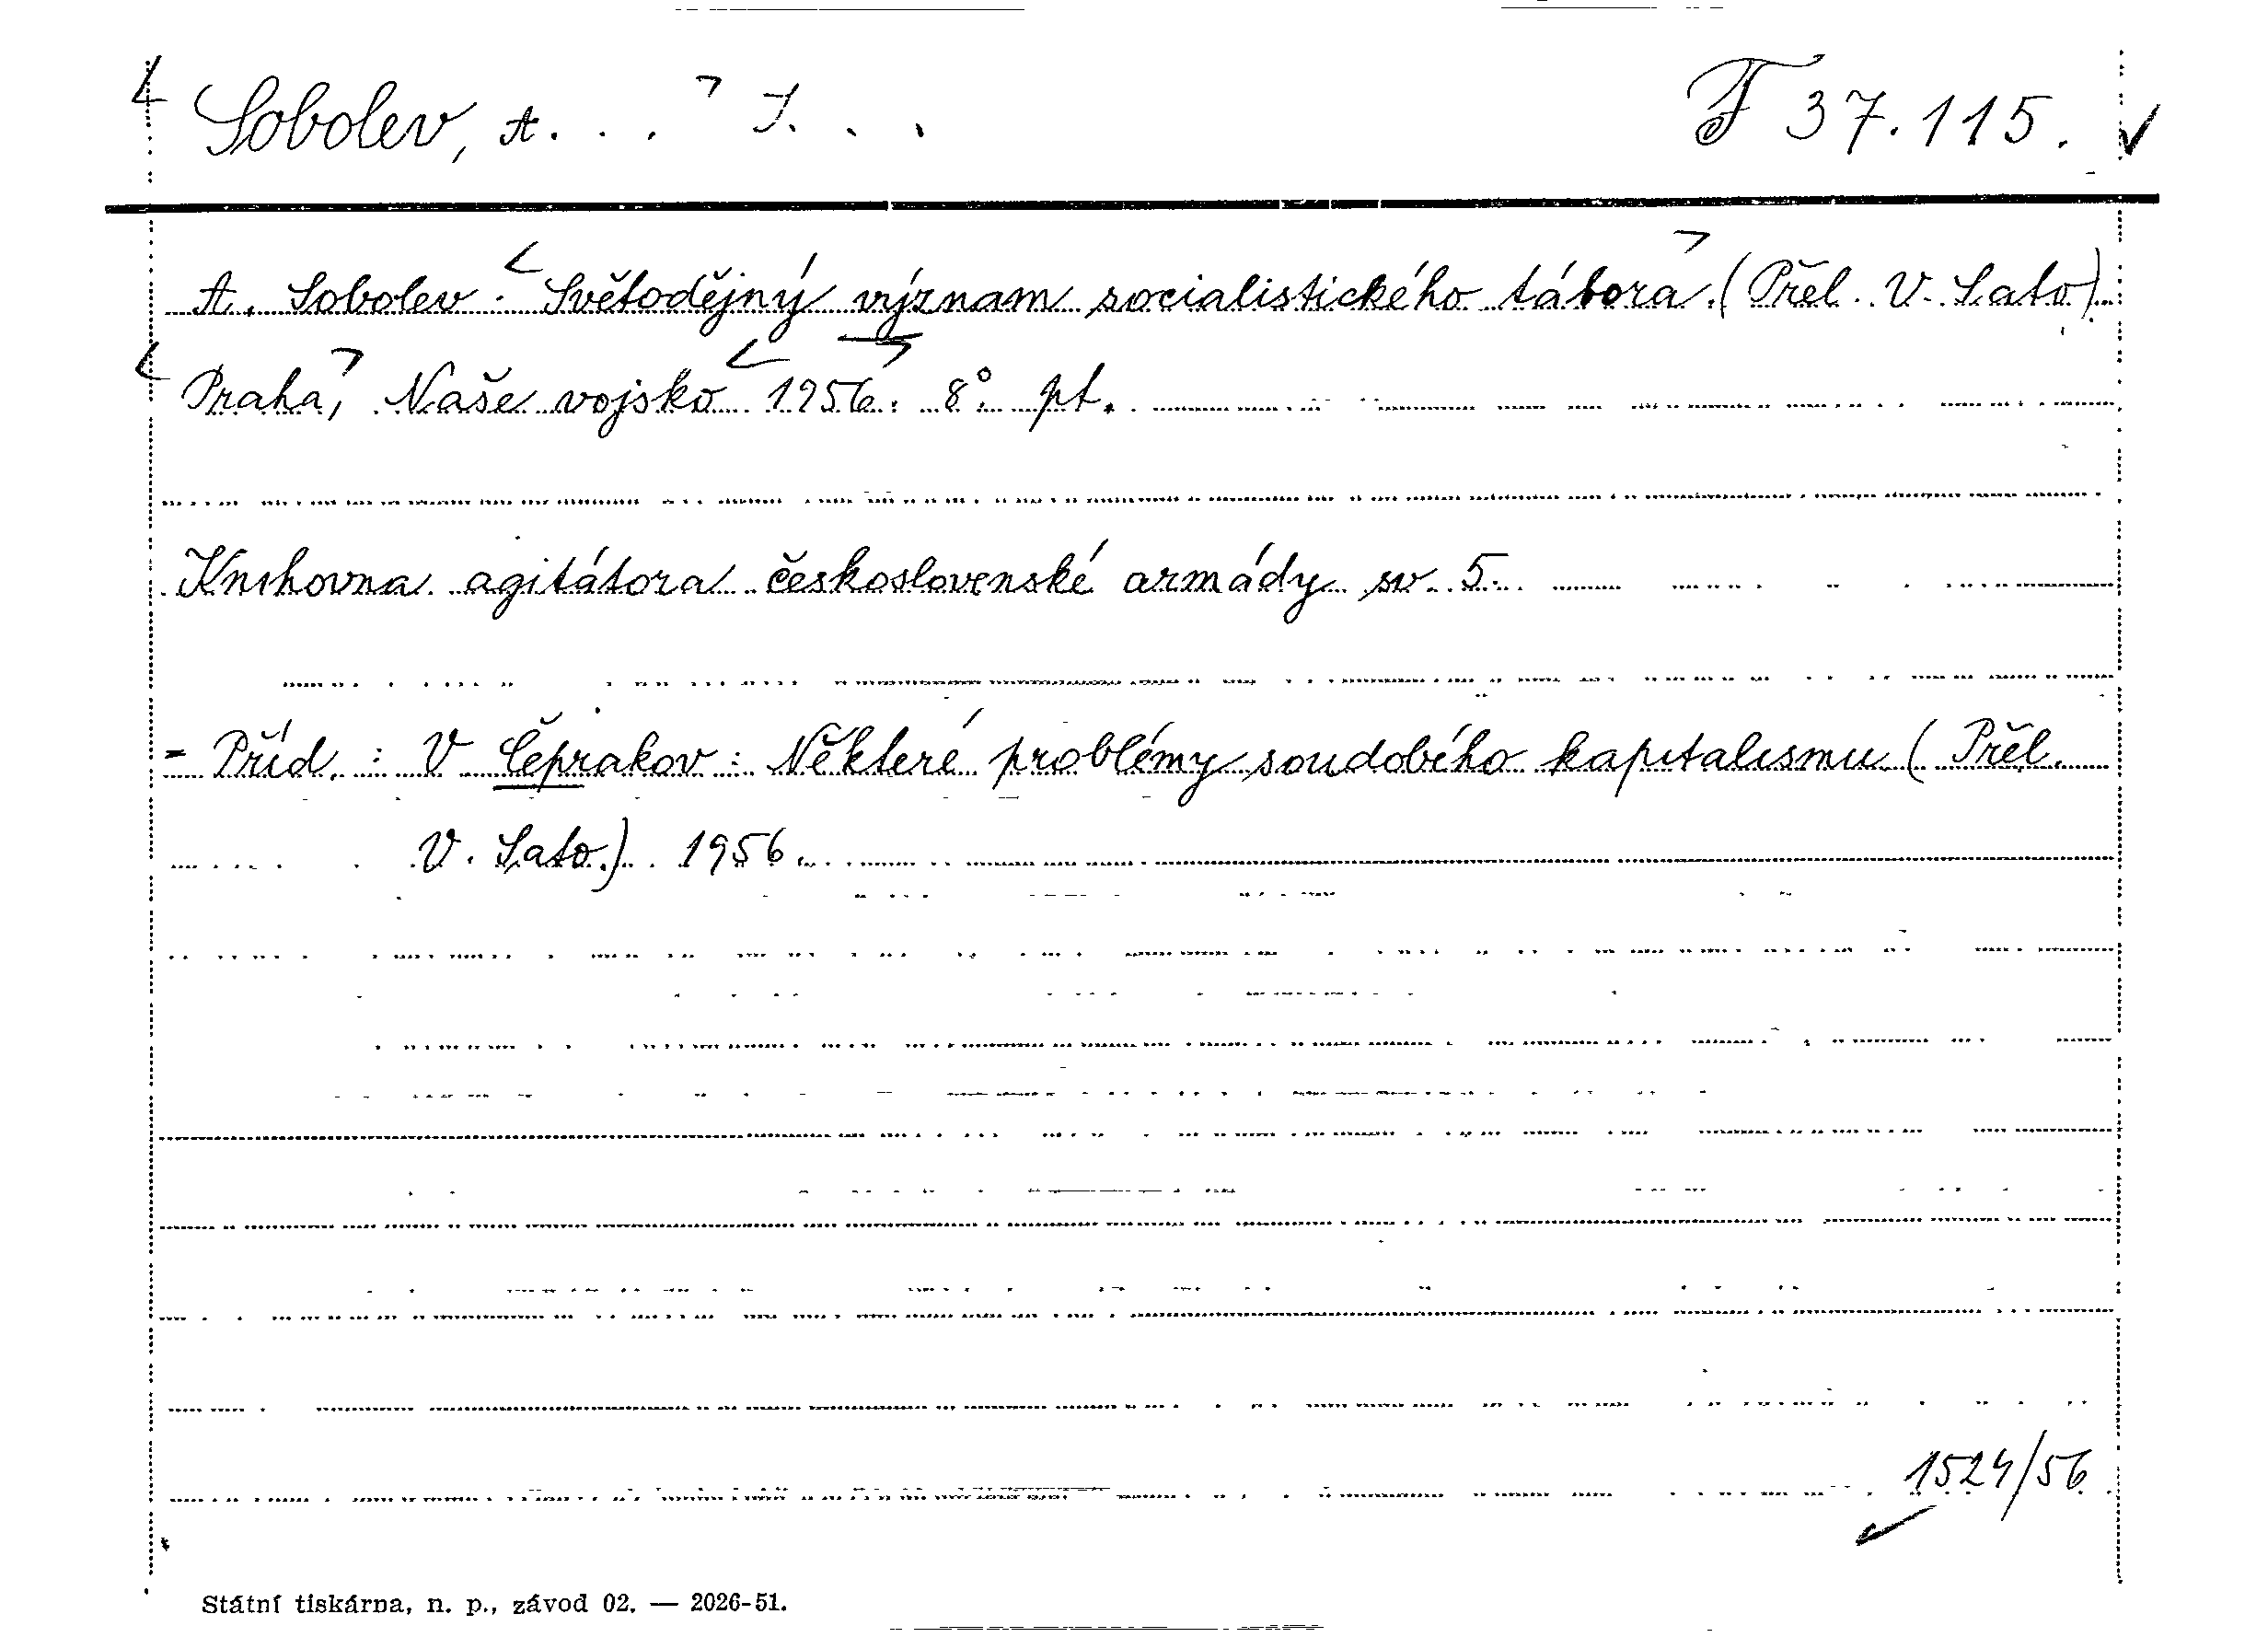 Sobolev, A... J...
F 37.115.
A. Sobolev: Světodějný význam socialistického tábora. (Přel. V. Sato)
Praha, Naše vojsko 1956. 8° pt.
Knihovna agitátora československé armády sv. 5.
= Příd.: V Čeprakov: Některé problémy soudobého kapitalismu (Přel.
V. Sato.) 1956.
1524/56
Státní tiskárna, n. p., závod 02. — 2026-51.